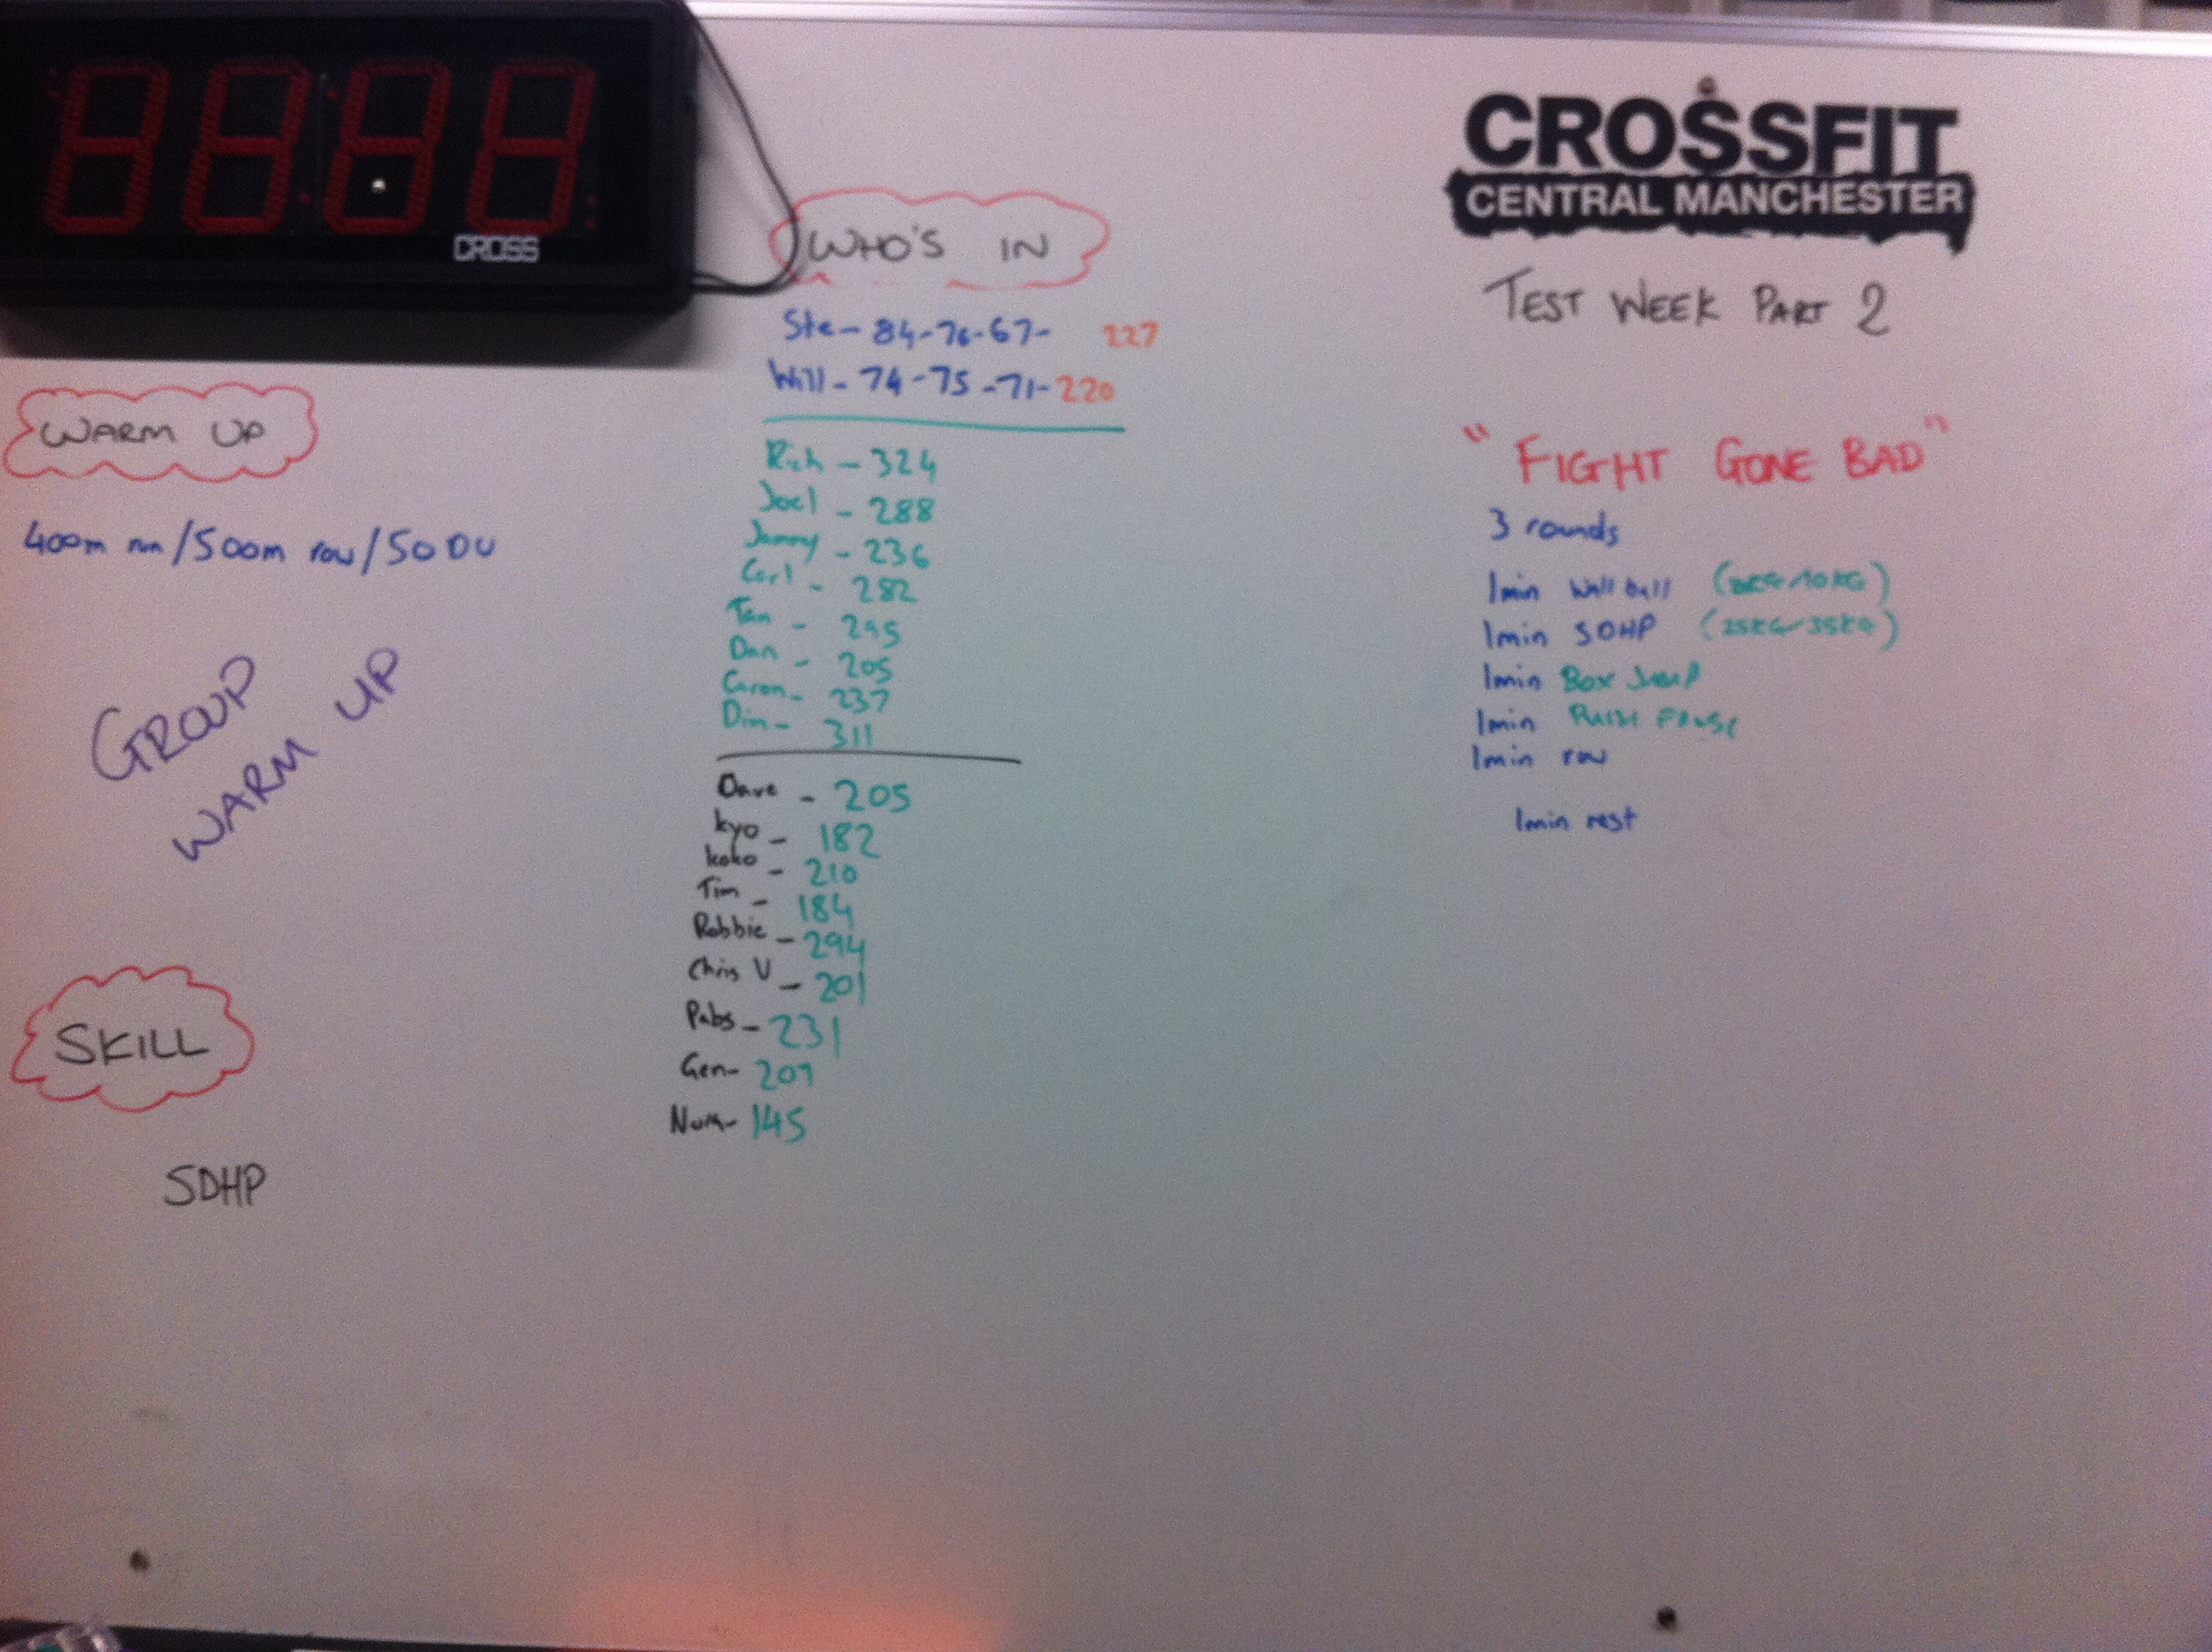 CROSS
WARM UP
400m run/500m row/50 DU
GROUP
WARM UP
SKILL
SDHP
WHO'S IN
Ste - 84-76-67- 227
Will - 74-75-71-220
Rich - 324
Joel - 288
Jammy - 236
Carl - 282
- 295
Dan - 205
- 237
Dim - 311
Dave - 205
Kyo - 182
Koko - 210
Tim - 184
Robbie - 294
Chris V - 201
Pabs - 231
Gen - 207
- 145
CROSSFIT
CENTRAL MANCHESTER
TEST WEEK PART 2
"FIGHT GONE BAD"
3 rounds
1min wall ball
1min SDHP (25KG/35KG)
1min BOX JUMP
1min
1min row
1min rest